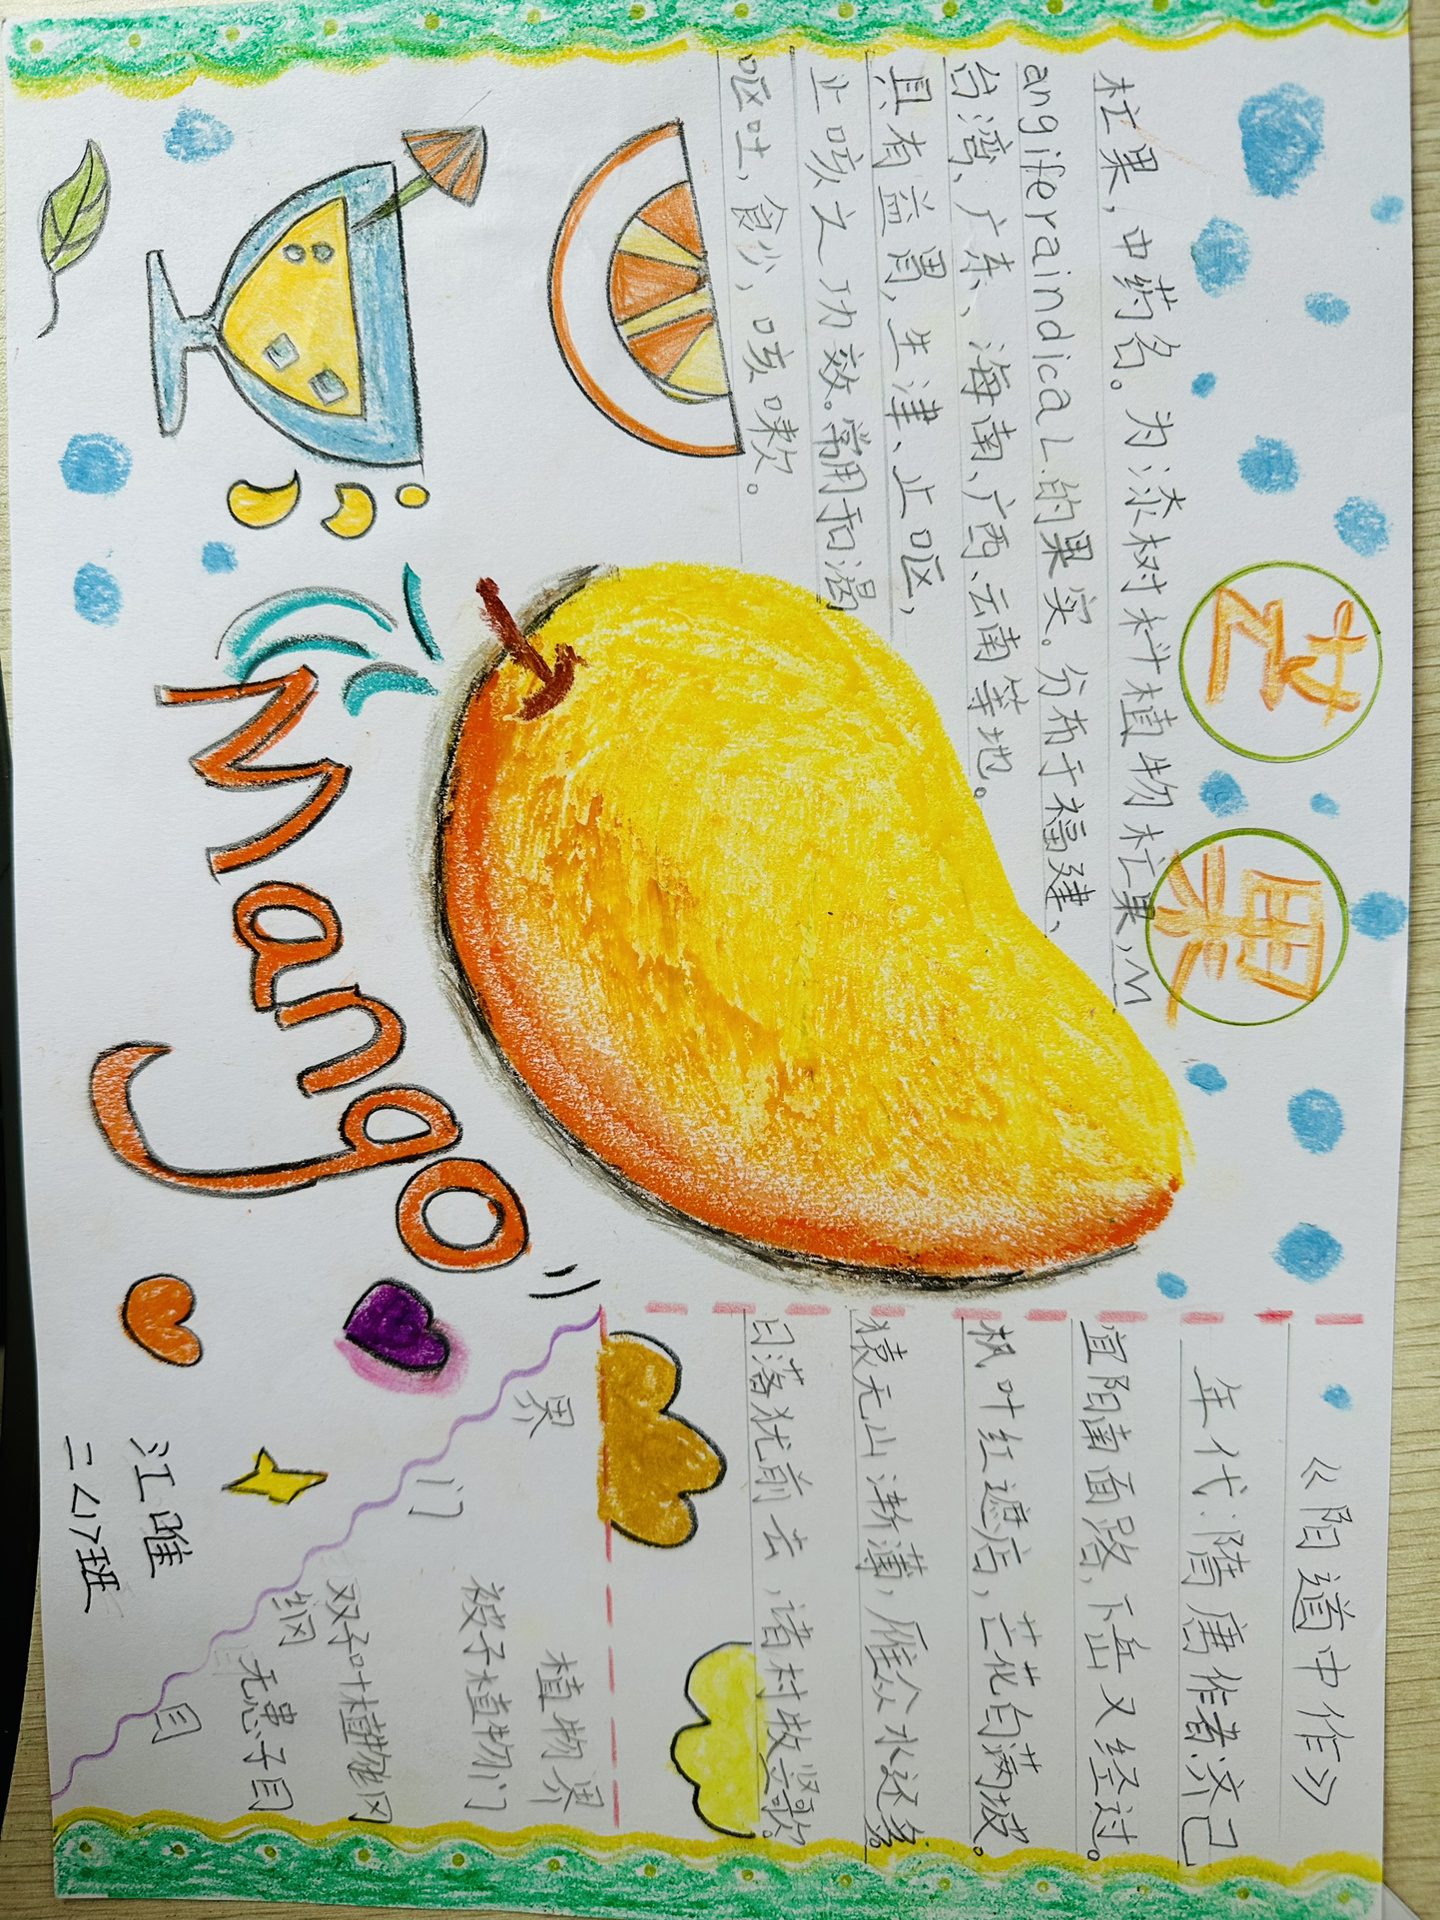 芒果
杧果，中药名。为漆树科植物杧果，M
angiferaindica L.的果实。分布于福建、
台湾、广东、海南、广西、云南等地。
具有益胃，生津、止呕，
止咳之功效。常用扣渴
呕吐，食少，咳嗽。
Mango
《阳道中作》
年代：隋唐作者：济己
宜阳南面路，下岳又经过。
枫叶红遮店，芒花白满坡。
猿无山渐薄，雁众水还多。
日落犹前去，诸村牧竖歌。
界 植物界
门 被子植物门
纲 双子叶植物纲
目 无患子目
江唯